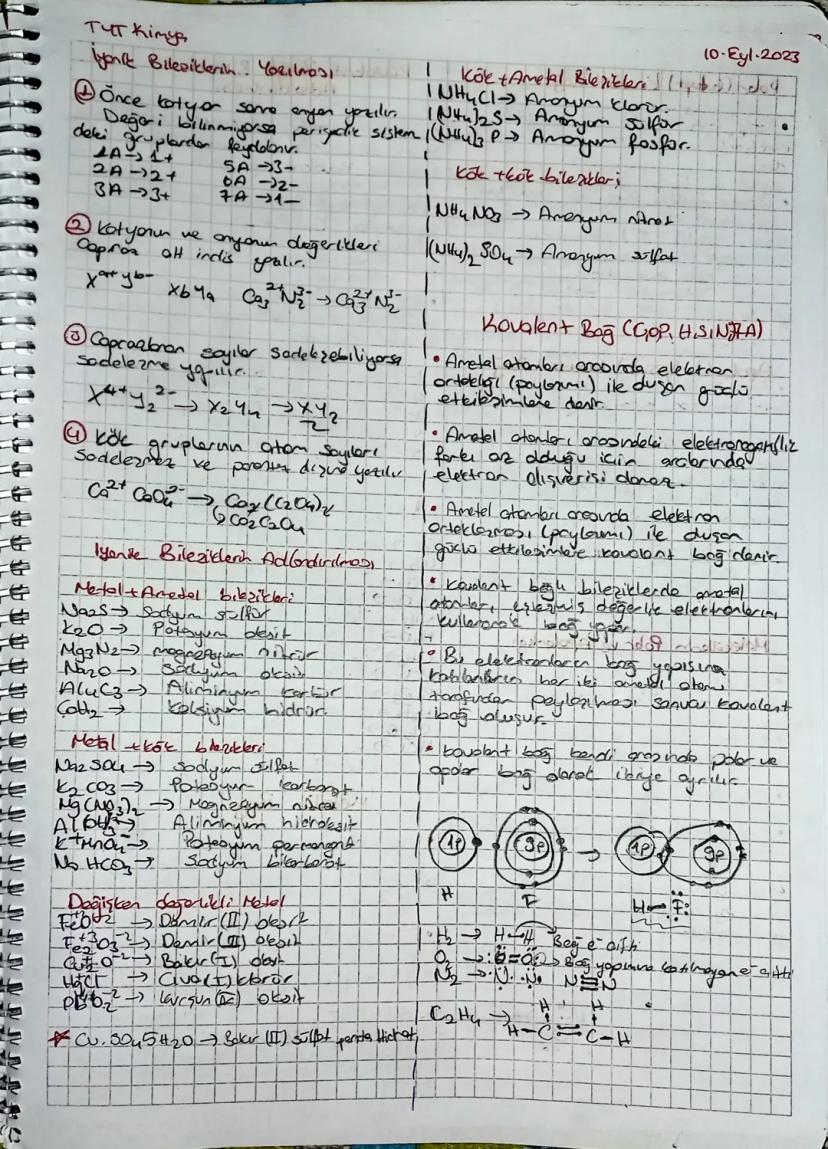 TYT Kimya
10.Eyl.2023
İyonik Bileşiklerin Yazılması
① Önce katyon sonra anyon yazılır.
Değeri bilinmiyorsa periyodik sistem
deki gruplardan faydalanır.
1A → 1+ 5A → 3-
2A → 2+ 6A → 2-
3A → 3+ 7A → 1-
② Katyonun ve anyonun değerlikleri
Çapraz alt indis yazılır.
X^a+ Y^b- XbYa Ca₃²⁺N₂³⁻ → Ca₃²⁺N₂³⁻
③ Çaprazlanan sayılar sadeleşebiliyorsa
sadeleşme yapılır.
X⁴⁺Y₂²⁻ → X₂Y₄ → XY₂
④ Kök gruplarının atom sayıları
sadeleşmez ve parantez dışına yazılır
Ca²⁺ → Ca₂(C₂O₄)₂
İyonik Bileşiklerin Adlandırılması
Metal + Ametal bileşikleri
Na₂S → Sodyum sülfür
K₂O → Potasyum oksit
Mg₃N₂ → magnezyum nitrür
Na₂O → Sodyum oksit
Al₄C₃ → Aliminyum karbür
CaH₂ → Kalsiyum hidrür
Metal + kök bileşikleri
Na₂SO₄ → Sodyum sülfat
K₂CO₃ → Potasyum karbonat
Mg(NO₃)₂ → Magnezyum nitrat
Al(OH)₃ → Aliminyum hidroksit
K⁺MnO₄⁻ → Potasyum permanganat
NaHCO₃ → Sodyum bikarbonat
Değişken değerlikli Metal
Fe⁺²O⁻² → Demir (II) oksit
Fe₂⁺³O₃⁻² → Demir (III) oksit
Cu₂⁺O⁻² → Bakır (I) oksit
HgCl → Civa (I) klorür
PbO₂⁻² → kurşun (IV) oksit
* Cu.SO₄5H₂O → Bakır (II) sülfat penta hidrat
Kök + Ametal Bileşikleri
NH₄Cl → Amonyum klorür.
(NH₄)₂S → Amonyum sülfür
(NH₄)₃P → Amonyum fosfür.
Kök + kök bileşikleri;
NH₄NO₃ → Amonyum nitrat
(NH₄)₂SO₄ → Amonyum sülfat
Kovalent Bağ
• Ametal atomları arasında elektron
ortaklığı (paylaşımı) ile oluşan güçlü
etkileşimlere denir.
• Ametal atomları arasındaki elektronegatiflik
farkı az olduğu için aralarında
elektron alışverişi olmaz.
• Ametal atomları arasında elektron
ortaklaşması (paylaşımı) ile oluşan
güçlü etkileşimlere kovalent bağ denir.
• Kovalent bağlı bileşiklerde ametal
atomları, eşleşmiş değerlik elektronlarını
kullanarak bağ yapar.
• Bu elektronların bağ yapısına
katılanların her iki ametal atomu
tarafından paylaşılması sonucu kovalent
bağ oluşur.
• kovalent bağ kendi arasında polar ve
apolar bağ olarak ikiye ayrılır.
1p 9p → 1p 9p
H F H-F:
H₂ → H-H Bağ e⁻ çifti
O₂ → :O=O: → Bağ yapımına katılmayan e⁻ çifti
N₂ → :N⋮ ⋮N: N≡N
C₂H₄ → H H
H-C=C-H